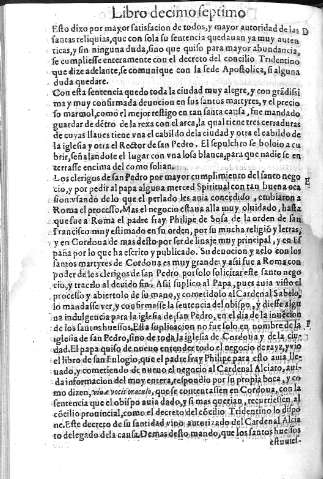 Libro decimo septimo
Esto dixo por mayor satisfacion de todos, y mayor autoridad de las D
santas reliquias, que con sola su sentencia quedauan ya muy auten
ticas, y sin ninguna duda, sino que quiso para mayor abundancia,
se cumpliesse enteramente con el decreto del concilio Tridentino
que dize adelante, se comunique con la sede Apostolica, si alguna
duda quedare.
Con esta sentencia quedo toda la ciudad muy alegre, y con grãdissi
ma y muy confirmada deuocion en sus santos martyres, y el precio
so marmol, como el mejor testigo en tan santa causa, fue mandado
guardar de dẽtro de la rexa con el arca, la qual tiene tres cerraduras
de cuyas llaues tiene vna el cabildo de la ciudad y otra el cabildo de
la iglesia y otra el Rector de san Pedro. El sepulchro se boluio a cu
brir, señalandose el lugar con vna losa blanca, para que nadie se en
terrasse encima del como solian.
Los clerigos de san Pedro por mayor cumplimiento del santo nego
cio, y por pedir al papa alguna merced Spiritual con tan buena oca
sion vsando de lo que el perlado les auia concedido, embiaron a
Roma el processo. Mas el negocio estaua alla muy oluidado, hasta
que fue a Roma el padre fray Philipe de Sosa de la orden de san
Francisco muy estimado en su orden, por su mucha religiõ y letras,
y en Cordoua de mas desto por ser de linaje muy principal, y en Es
paña por lo que ha escrito y publicado. Su deuocion y zelo con los
santos martyres de Cordoua es muy grande: y assi fue a Roma con
poder de los clerigos de san Pedro por solo solicitar este santo nego
cio, y traerlo al deuido fin. Assi suplico al Papa, pues auia visto el
processo y abiertolo de su mano, y cometidolo al Cardenal Sabelo,
lo mandasse ver, y confirmasse la sentencia del obispo, y diesse algu
na indulgencia para la iglesia de san Pedro, en el dia de la inuẽcion
de los santos huessos. Esta suplicacion no fue solo en nombre de la
iglesia de san Pedro, sino de toda la iglesia de Cordoua y de la ciu-
dad. El papa quiso de nueuo entender todo el negocio de rayz, y vio
el libro de san Eulogio, que el padre fray Philipe para esto auia lle-
uado, y cometiendo de nueuo el negocio al Cardenal Alciato, aui-
da informacion del muy entera, respondio por su propia boca, y co
mo dizen, viuæ vocis oraculo, que se contentassen en Cordoua, con la
sentencia que el obispo auia dado, y si mas querian, recurriessen al
cõcilio prouincial, como el decreto del cõcilio Tridentino lo dispo
ne. Este decreto de su santidad vino autorizado del Cardenal Alcia
to delegado de la causa. Demas desto mando, que los santos huessos
estuuies-